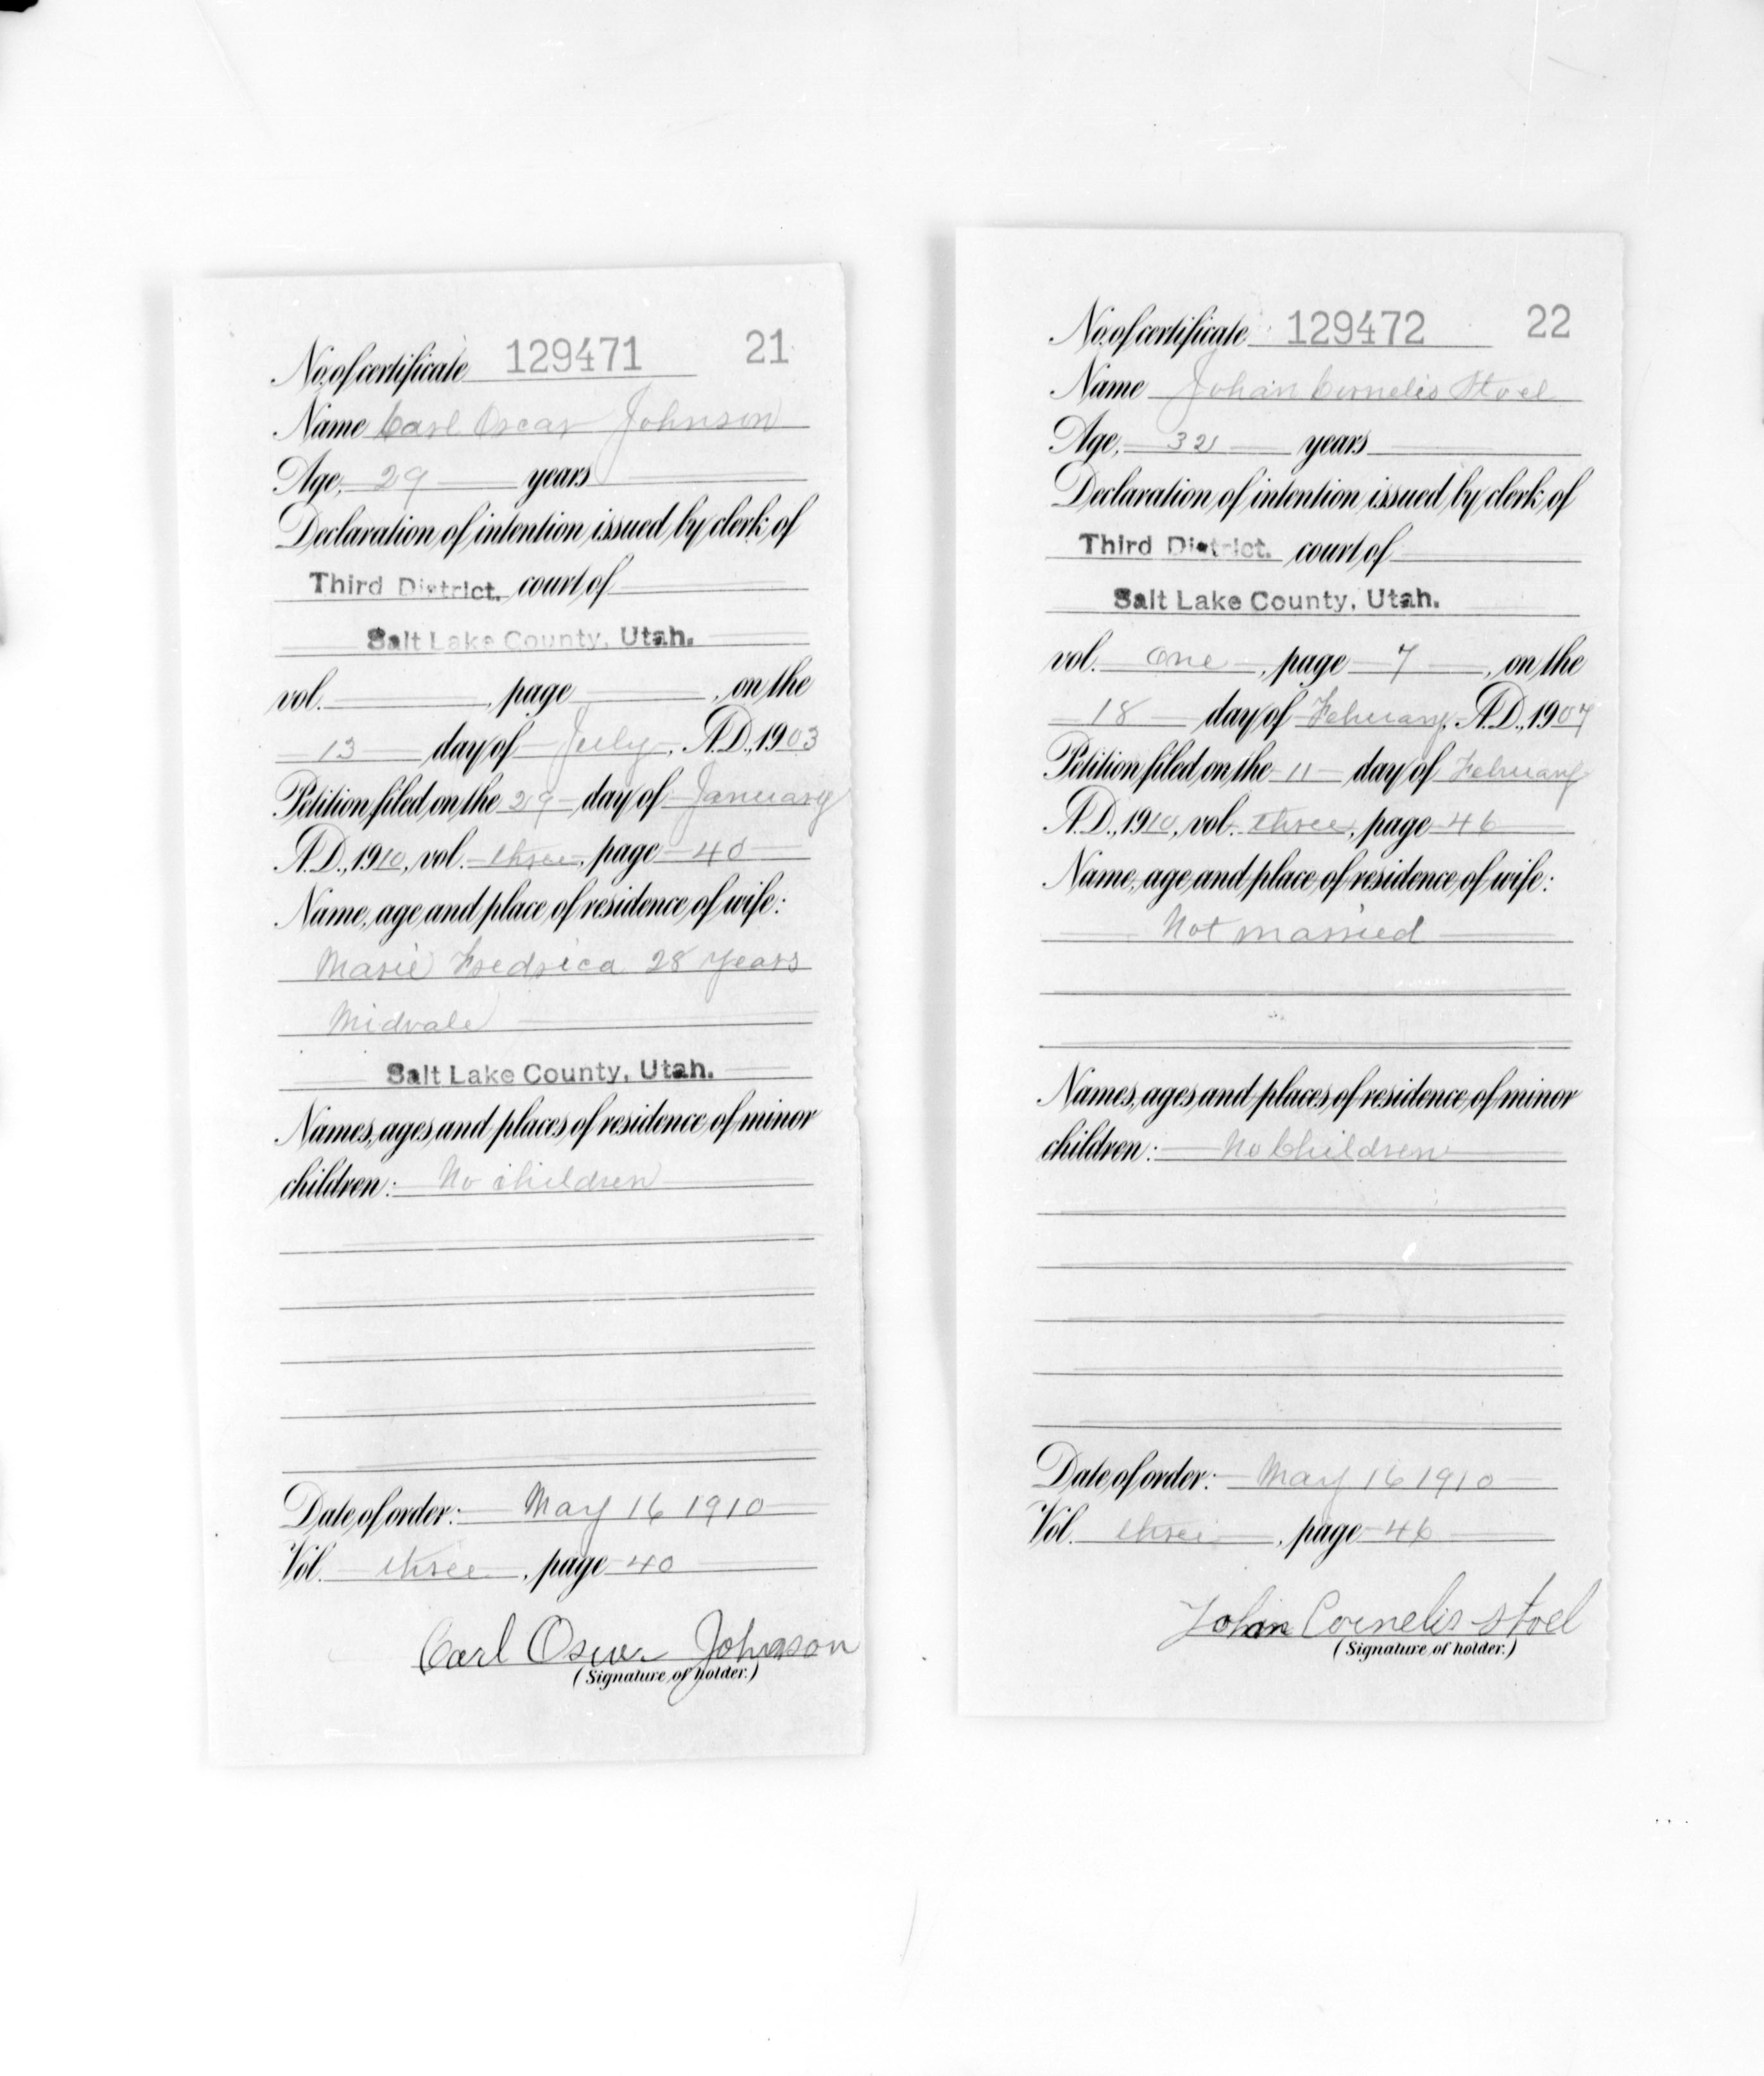 No. of certificate 129471 21
Name Carl Oscar Johnson
Age, 29 years
Declaration of intention issued by clerk of
Third District. court of
Salt Lake County, Utah.
vol. , page , on the
13 day of July, A.D., 1903
Petition filed on the 29 day of January
A.D., 1910, vol. three, page 40
Name, age and place of residence of wife:
Marie Fredrica 28 years
Midvale
Salt Lake County, Utah.
Names, ages and places of residence of minor
children: No children
Date of order: May 16 1910
Vol. three, page 40
Carl Oscar Johnson
(Signature of holder.)
No. of certificate 129472 22
Name Johan Cornelis Stoel
Age, 32 years
Declaration of intention issued by clerk of
Third District. court of
Salt Lake County, Utah.
vol. One, page 7, on the
18 day of February, A.D., 1907
Petition filed on the 11 day of February
A.D., 1910, vol. three, page 46
Name, age and place of residence of wife:
Not married
Names, ages and places of residence of minor
children: No Children
Date of order: May 16 1910
Vol. three, page 46
Johan Cornelis Stoel
(Signature of holder.)